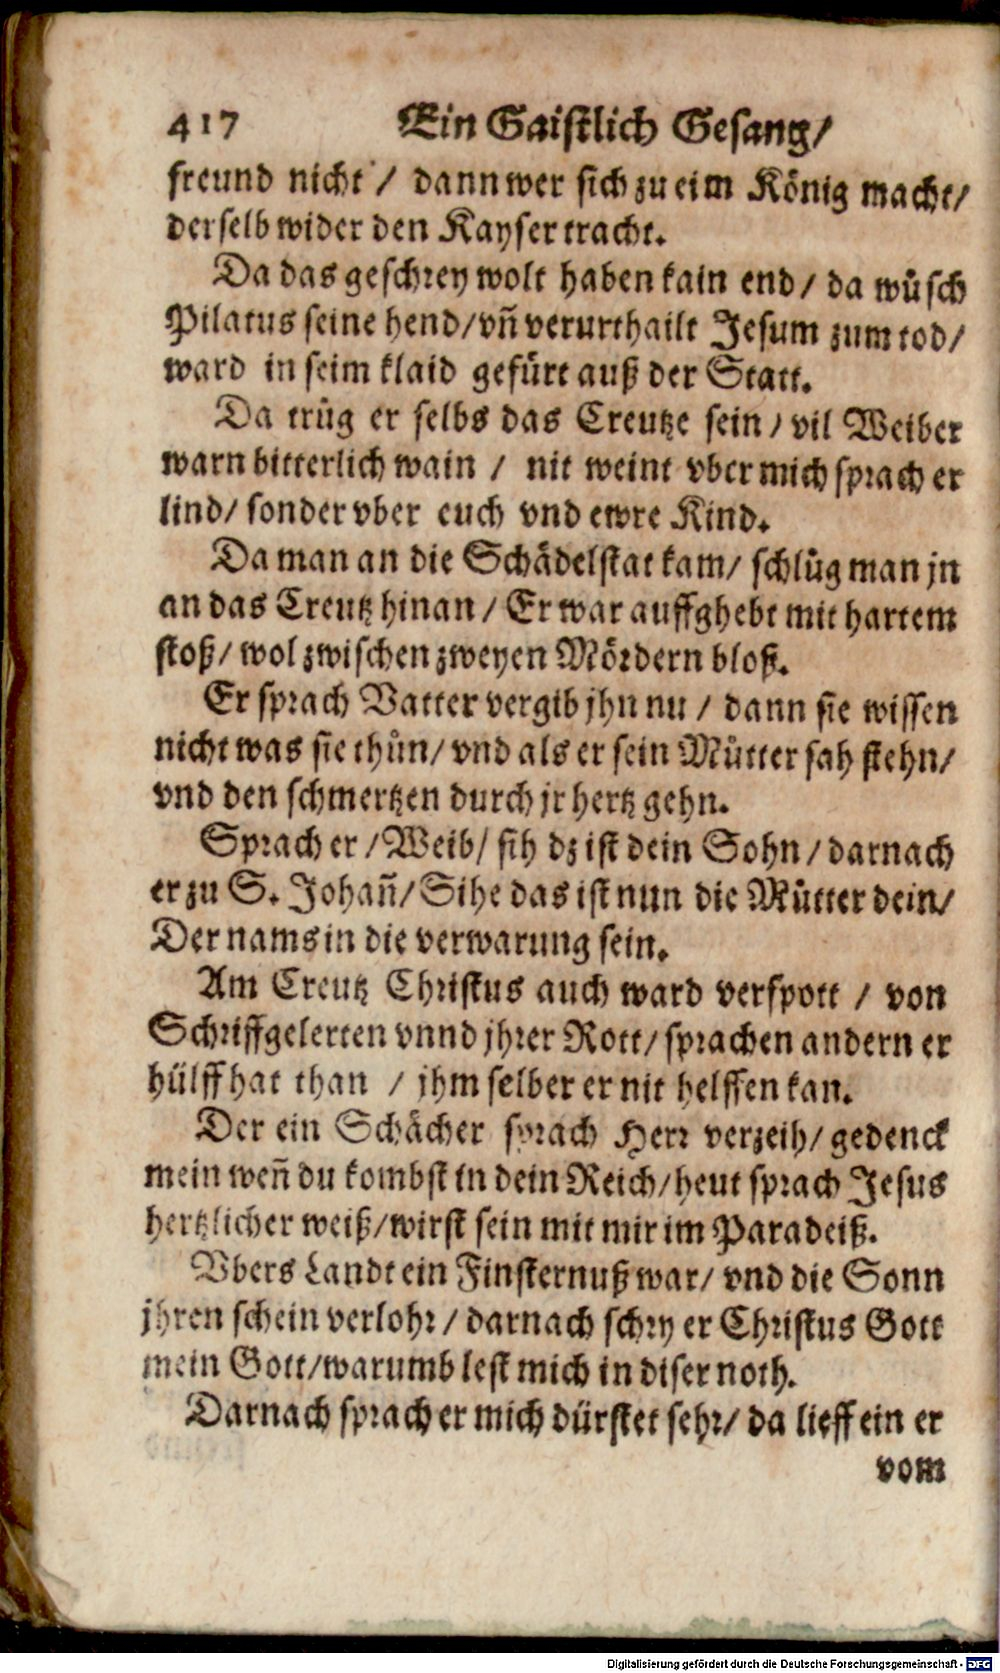 417 Ein Gaistlich Gesang/
freund nicht / dann wer sich zu eim König macht/
derselb wider den Kayser tracht.
Da das geschrey wolt haben kain end/ da wůsch
Pilatus seine hend/vñ verurthailt Jesum zum tod/
ward in seim klaid gefürt auß der Statt.
Da trůg er selbs das Creutze sein/ vil Weiber
warn bitterlich wain / nit weint vber mich sprach er
lind/ sonder vber euch vnd ewre Kind.
Da man an die Schädelstat kam/ schlůg man jn
an das Creutz hinan / Er war auffghebt mit hartem
stoß/ wol zwischen zweyen Mördern bloß.
Er sprach Vatter vergib jhn nu / dann sie wissen
nicht was sie thůn/ vnd als er sein Můtter sah stehn/
vnd den schmertzen durch jr hertz gehn.
Sprach er /Weib/ sih dz ist dein Sohn / darnach
er zu S. Johañ/ Sihe das ist nun die Můtter dein/
Der nams in die verwarung sein.
Am Creutz Christus auch ward verspott / von
Schriffgelerten vnnd jhrer Rott/ sprachen andern er
hülff hat than / jhm selber er nit helffen kan.
Der ein Schächer sprach Herr verzeih/ gedenck
mein weñ du kombst in dein Reich/heut sprach Jesus
hertzlicher weiß/wirst sein mit mir im Paradeiß.
Vbers Landt ein Finsternuß war/ vnd die Sonn
jhren schein verlohr / darnach schry er Christus Gott
mein Gott/warumb lest mich in diser noth.
Darnach sprach er mich dürstet sehr/ da lieff ein er
vom
Digitalisierung gefördert durch die Deutsche Forschungsgemeinschaft - DFG